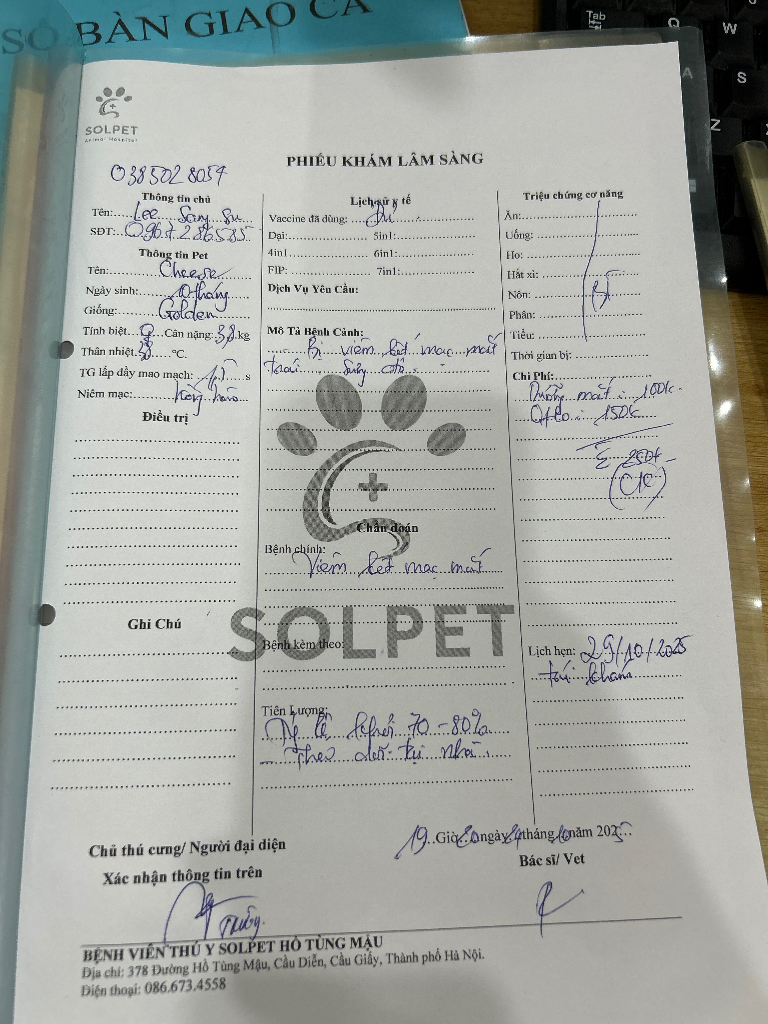 SỔ BÀN GIAO CA
Tab
Q
W
A
S
Z
SOLPET
Animal Hospital
PHIẾU KHÁM LÂM SÀNG
0385028057
Thông tin chủ
Tên: Lee Sang Su
SĐT: 0967286585
Thông tin Pet
Tên: Cheese
Ngày sinh: 10 tháng
Giống: Golden
Tính biệt ♀ Cân nặng: 38 kg
Thân nhiệt 38 °C.
TG lấp đầy mao mạch: 1,5 s
Niêm mạc: hồng hào
Điều trị
Ghi Chú
Lịch sử y tế
Vaccine đã dùng: Đủ
Dại: 5in1:
4in1 6in1:
FIP: 7in1:
Dịch Vụ Yêu Cầu:
Mô Tả Bệnh Cảnh:
Bị viêm kết mạc mắt
trái sưng đỏ.
Chẩn đoán
Bệnh chính:
Viêm kết mạc mắt
SOLPET
Bệnh kèm theo:
Tiên Lượng:
Tỷ lệ khỏi 70-80%
Theo dõi tại nhà.
Triệu chứng cơ năng
Ăn:
Uống:
Ho:
Hắt xì:
Nôn: BT
Phân:
Tiểu:
Thời gian bị:
Chi Phí:
Dưỡng mắt: 100k
Oflo: 150k
Σ 250k
(CK)
Lịch hẹn: 29/10/2025
tái khám
19 Giờ 20 ngày 24 tháng 10 năm 2025
Chủ thú cưng/ Người đại diện
Xác nhận thông tin trên
Bác sĩ/ Vet
BỆNH VIÊN THÚ Y SOLPET HỒ TÙNG MẬU
Địa chỉ: 378 Đường Hồ Tùng Mậu, Cầu Diễn, Cầu Giấy, Thành phố Hà Nội.
Điện thoại: 086.673.4558